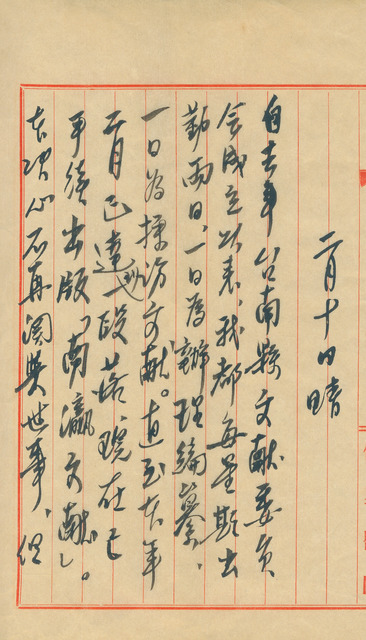 二月十日晴
自去年台南縣文獻委員
會成立以來，我都每星期出
勤兩日，一日為辦理編纂，
一日為採訪文獻。直至本年
二月已達到一段落，現在已
再續出版「南瀛文獻」。
本決心不再關與世事，但